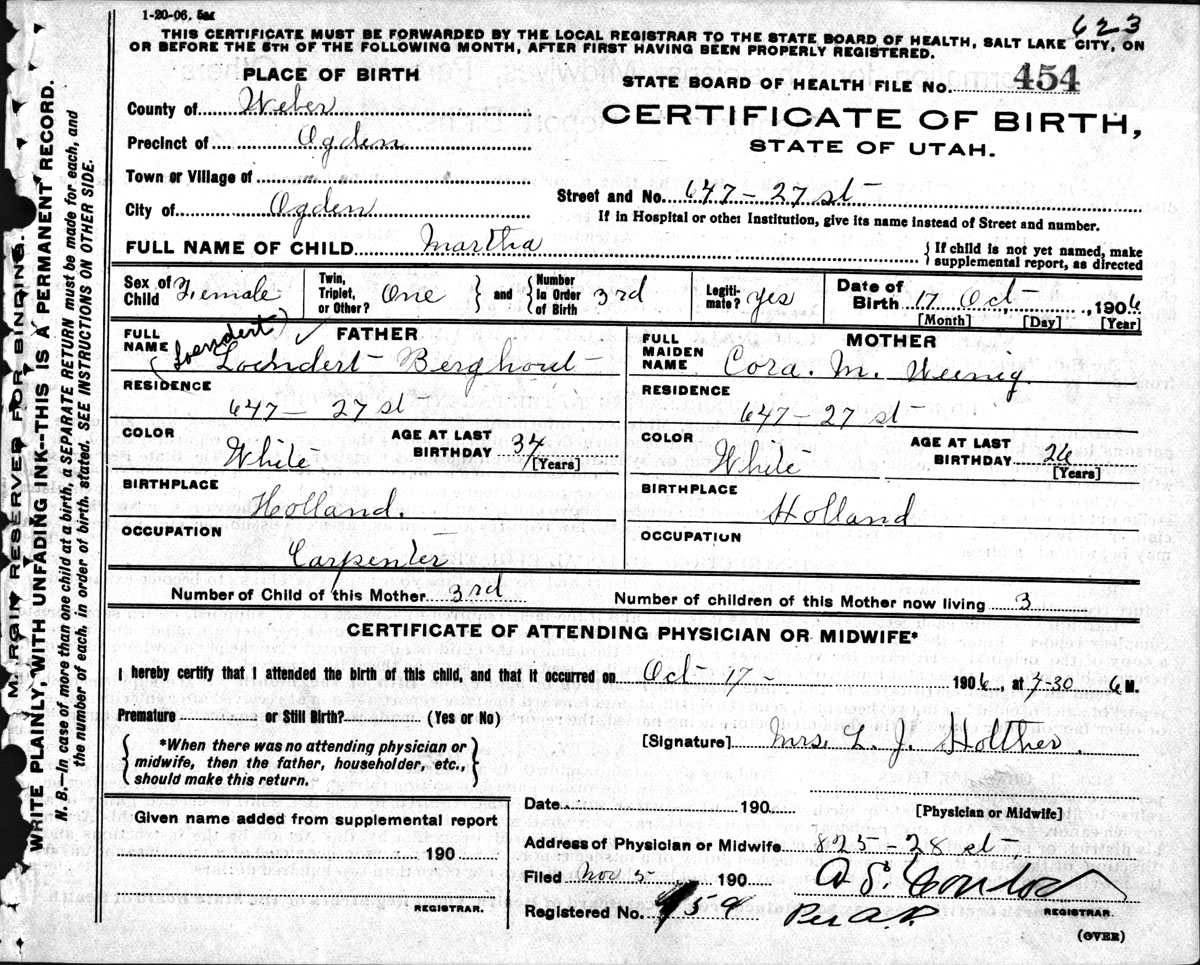 1-20-06. 5M
623
THIS CERTIFICATE MUST BE FORWARDED BY THE LOCAL REGISTRAR TO THE STATE BOARD OF HEALTH, SALT LAKE CITY, ON
OR BEFORE THE 5TH OF THE FOLLOWING MONTH, AFTER FIRST HAVING BEEN PROPERLY REGISTERED.
PLACE OF BIRTH
STATE BOARD OF HEALTH FILE No. 454
County of Weber
CERTIFICATE OF BIRTH,
Precinct of Ogden
STATE OF UTAH.
Town or Village of
Street and No. 647-27 st
City of Ogden
If in Hospital or other Institution, give its name instead of Street and number.
FULL NAME OF CHILD Martha
{If child is not yet named, make
supplemental report, as directed
Sex of Child Female
Twin, Triplet, or Other? One } and { Number In Order of Birth 3rd
Legiti-mate? yes
Date of Birth 17 Oct, 1906
[Month] [Day] [Year]
FULL NAME
FATHER
(Loendert)
Loendert Berghout
FULL MAIDEN NAME
MOTHER
Cora. M. Weenig.
RESIDENCE
647-27 st
RESIDENCE
647-27 st
COLOR
White
AGE AT LAST BIRTHDAY 34
[Years]
COLOR
White
AGE AT LAST BIRTHDAY 26
[Years]
BIRTHPLACE
Holland.
BIRTHPLACE
Holland
OCCUPATION
Carpenter
OCCUPATION
Number of Child of this Mother 3rd
Number of children of this Mother now living 3
CERTIFICATE OF ATTENDING PHYSICIAN OR MIDWIFE*
I hereby certify that I attended the birth of this child, and that it occurred on Oct 17- 1906, at 7-30 M.
Premature or Still Birth? (Yes or No)
{*When there was no attending physician or
midwife, then the father, householder, etc.,
should make this return.}
[Signature] Mrs. L. J. Holther.
[Physician or Midwife]
Date 190
Given name added from supplemental report
190
REGISTRAR.
Address of Physician or Midwife 825-28 st
Filed Nov 5 190
Registered No. 454
Per A.P.
REGISTRAR.
(OVER)
MARGIN RESERVED FOR BINDING.
WRITE PLAINLY, WITH UNFADING INK--THIS IS A PERMANENT RECORD.
N. B.—In case of more than one child at a birth, a SEPARATE RETURN must be made for each, and
the number of each, in order of birth, stated. SEE INSTRUCTIONS ON OTHER SIDE.